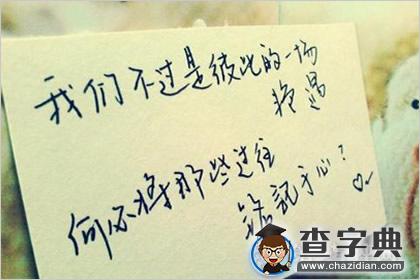 我们不过是彼此的一场
艳遇
何必将那些过往
铭记于心?
查字典
www.chazidian.com